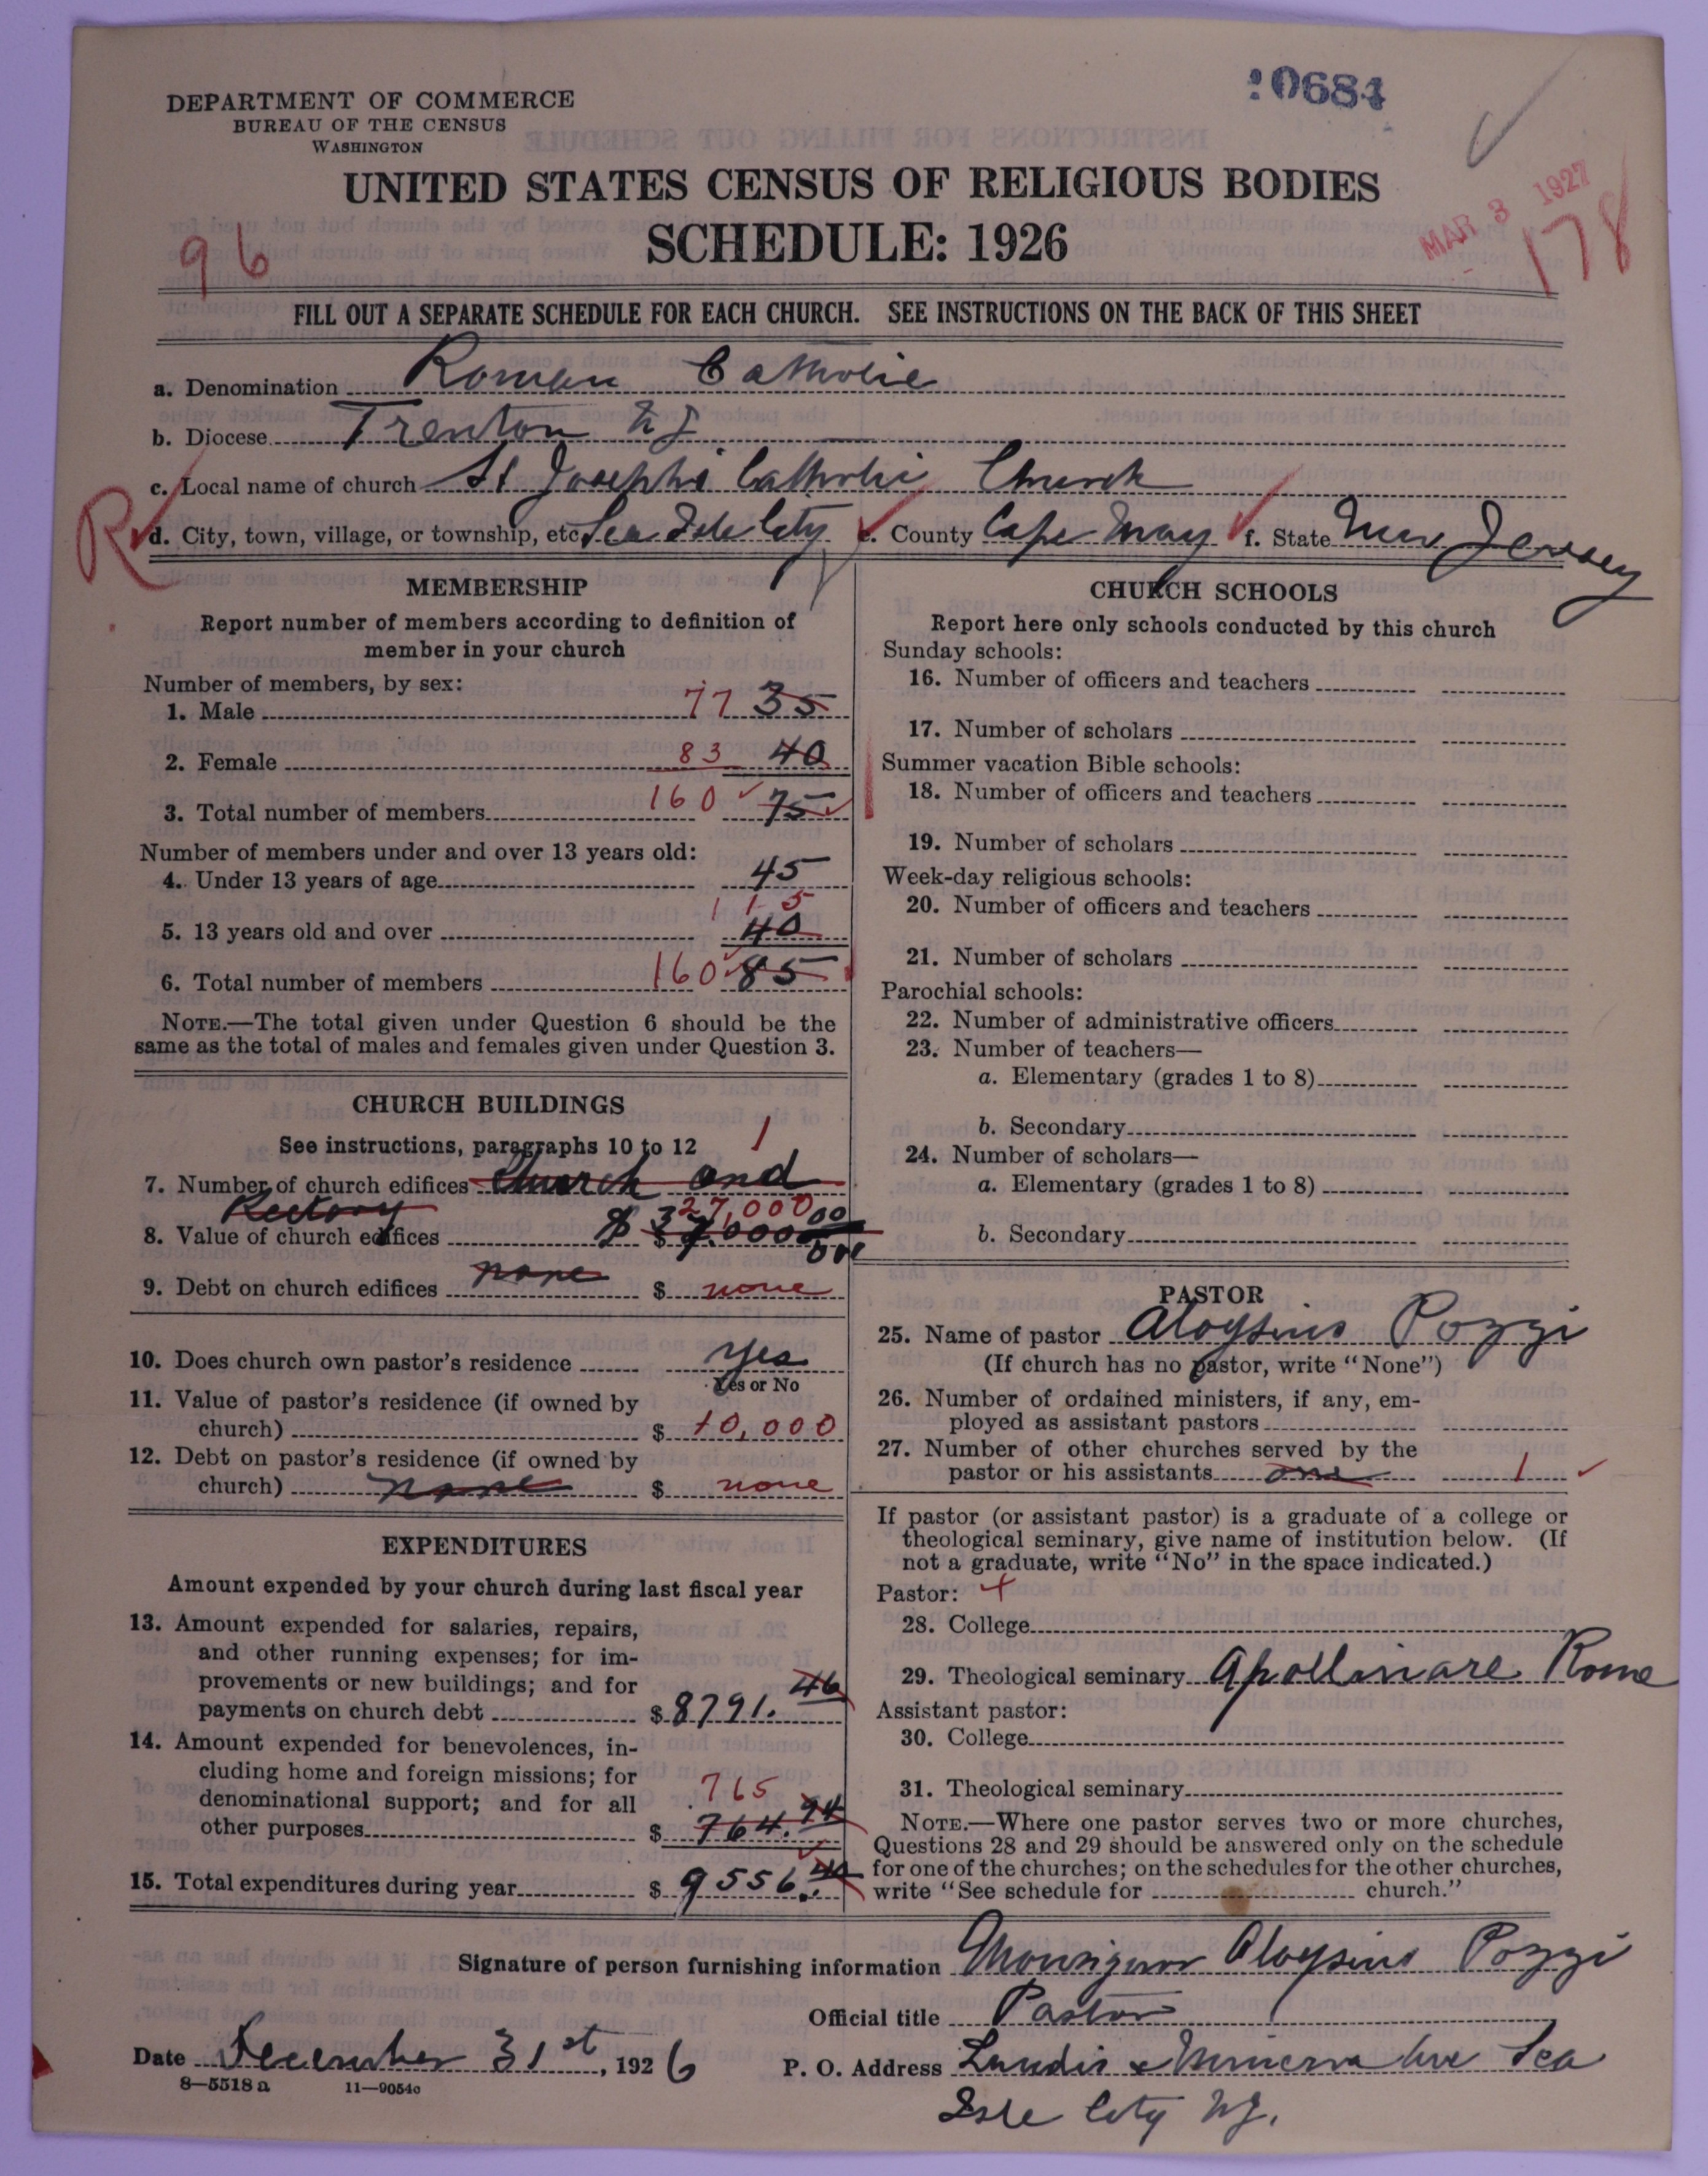 DEPARTMENT OF COMMERCE
BUREAU OF THE CENSUS
WASHINGTON
0684
UNITED STATES CENSUS OF RELIGIOUS BODIES
SCHEDULE: 1926
MAR 3 1927
96
178
FILL OUT A SEPARATE SCHEDULE FOR EACH CHURCH. SEE INSTRUCTIONS ON THE BACK OF THIS SHEET
a. Denomination Roman Catholic
b. Diocese Trenton NJ
c. Local name of church St Josephs Catholic Church
R d. City, town, village, or township, etc. Sea Isle City e. County Cape May f. State New Jersey
MEMBERSHIP
Report number of members according to definition of
member in your church
Number of members, by sex:
1. Male 77 35
2. Female 83 40
3. Total number of members 160 75
Number of members under and over 13 years old:
4. Under 13 years of age 45
115
5. 13 years old and over 40
6. Total number of members 160 85
NOTE.—The total given under Question 6 should be the
same as the total of males and females given under Question 3.
CHURCH BUILDINGS
See instructions, paragraphs 10 to 12 1
7. Number of church edifices Church and
Rectory 27,000
8. Value of church edifices $ $ 37.000 00
9. Debt on church edifices none $ none
10. Does church own pastor's residence Yes
Yes or No
11. Value of pastor's residence (if owned by
church) $ 10,000
12. Debt on pastor's residence (if owned by
church) none $ none
EXPENDITURES
Amount expended by your church during last fiscal year
13. Amount expended for salaries, repairs,
and other running expenses; for im-
provements or new buildings; and for
payments on church debt $ 8791. 46
14. Amount expended for benevolences, in-
cluding home and foreign missions; for
denominational support; and for all 765
other purposes $ 764. 94
15. Total expenditures during year $ 9556. 40
CHURCH SCHOOLS
Report here only schools conducted by this church
Sunday schools:
16. Number of officers and teachers
17. Number of scholars
Summer vacation Bible schools:
18. Number of officers and teachers
19. Number of scholars
Week-day religious schools:
20. Number of officers and teachers
21. Number of scholars
Parochial schools:
22. Number of administrative officers
23. Number of teachers—
a. Elementary (grades 1 to 8)
b. Secondary
24. Number of scholars—
a. Elementary (grades 1 to 8)
b. Secondary
PASTOR
25. Name of pastor Aloysius Pozzi
(If church has no pastor, write "None")
26. Number of ordained ministers, if any, em-
ployed as assistant pastors
27. Number of other churches served by the
pastor or his assistants one 1
If pastor (or assistant pastor) is a graduate of a college or
theological seminary, give name of institution below. (If
not a graduate, write "No" in the space indicated.)
Pastor:
28. College
29. Theological seminary Apollinare Rome
Assistant pastor:
30. College
31. Theological seminary
NOTE.—Where one pastor serves two or more churches,
Questions 28 and 29 should be answered only on the schedule
for one of the churches; on the schedules for the other churches,
write "See schedule for church."
Signature of person furnishing information Monsignor Aloysius Pozzi
Official title Pastor
Date December 31st, 1926 P. O. Address Landis & Minerva Ave Sea
8—5518 a 11—9054c
Isle City NJ.